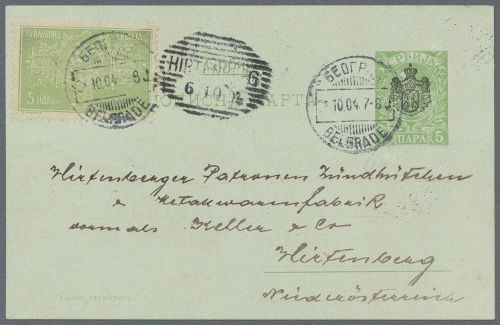 СРБИЈА
5 ПАРА
БЕОГР
10.04. 7-8
BELGRADE
HIRT G
6 10 4
БЕОГР
10.04. 7-8
BELGRADE
СРБИЈА
ПАРА 5
Hirtenberger Patronen Zündhütchen
& Metallwarenfabrik
vormals Keller & Co
Hirtenberg
Niederösterreich